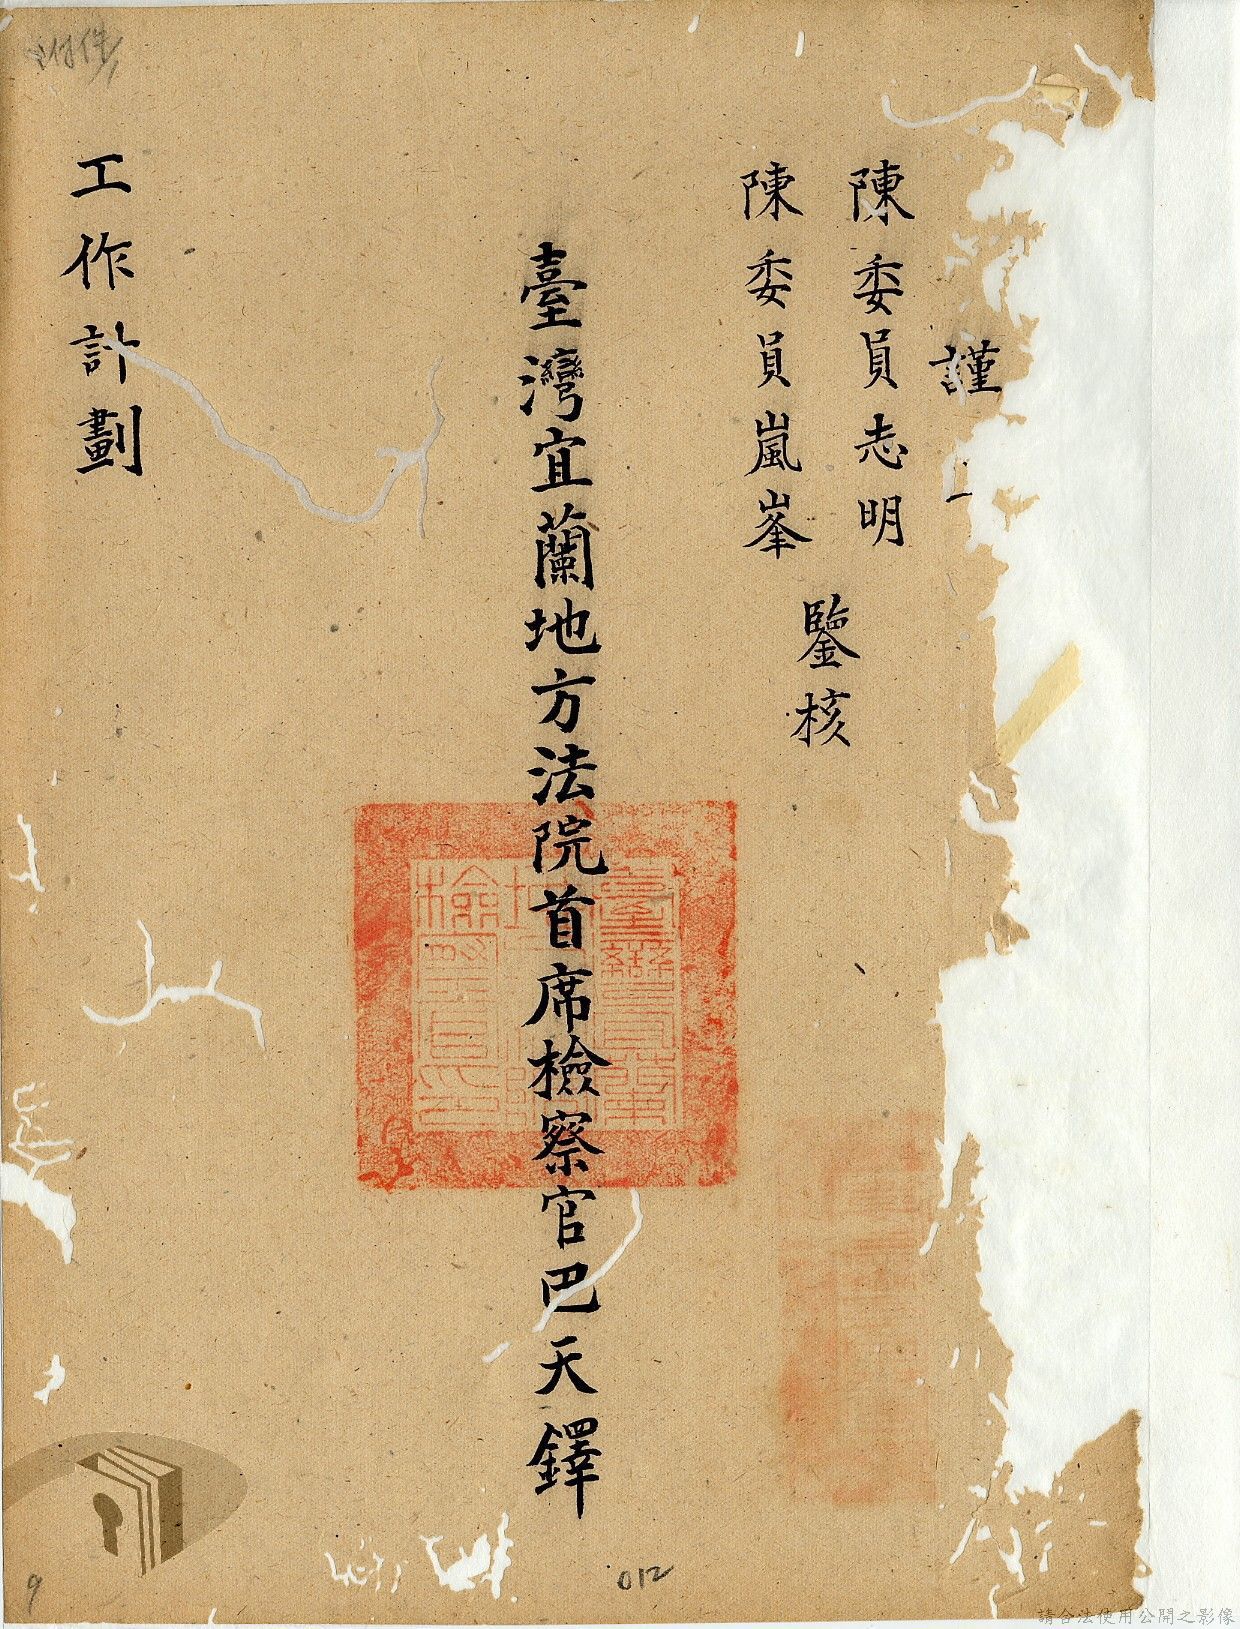 謹
陳委員志明
陳委員嵐峯
鑒核
臺灣宜蘭地方法院首席檢察官巴天鐸
工作計劃
附件
012
9
請合法使用公開之影像